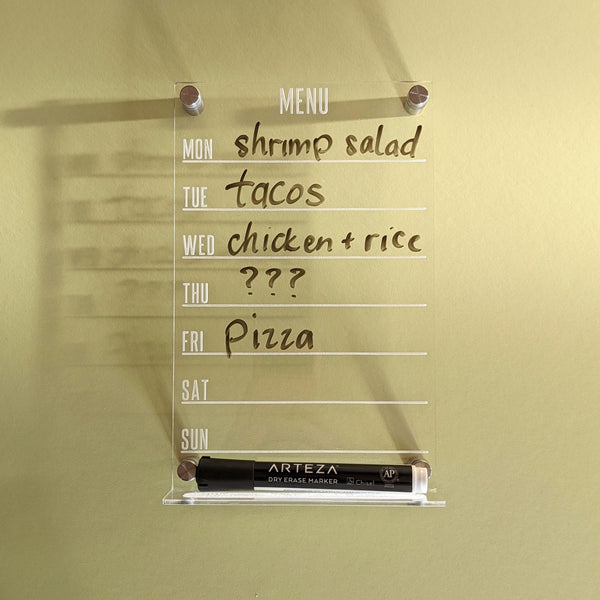 MENU
MON shrimp salad
TUE tacos
WED chicken + rice
THU ???
FRI Pizza
SAT
SUN
ARTEZA
DRY ERASE MARKER Chisel AP